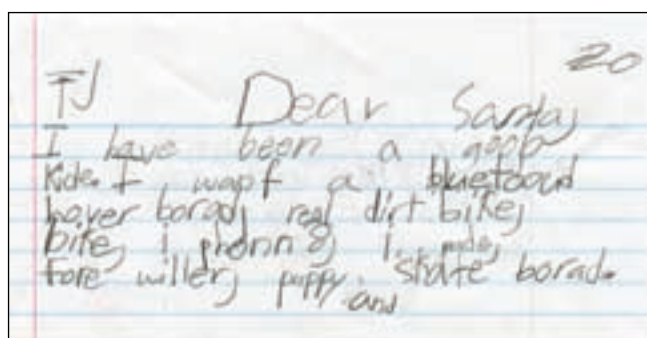 20
TJ Dear Santa,
I have been a goob
Kide. I wapf a bluetooud
hover borad, real dirt bike,
bike, i phonn 8, i. pade,
fore willer, puppy, skate borad.
and